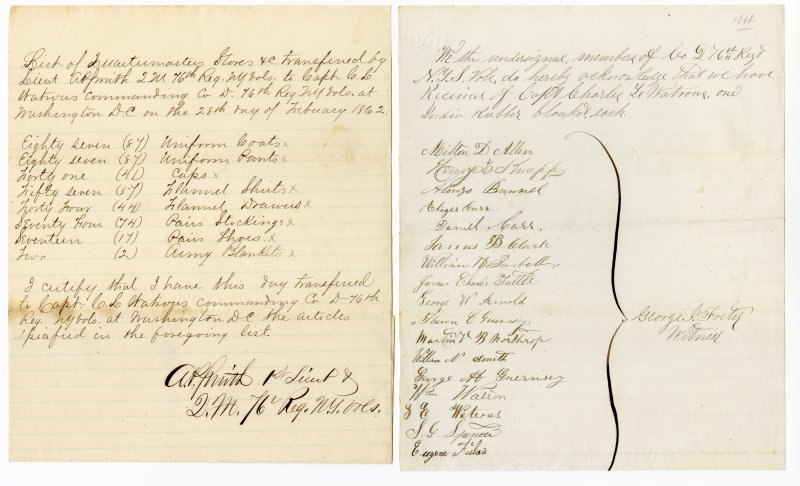 List of Quartermasters Stores &c transferred by
Lieut A.P. Smith Q.M. 76th Reg. NY Vols. to Capt. C L
Watrous Commanding Co D. 76th Reg NY Vols. at
Washington D C on the 28th day of Febuary 1862.
Eighty seven (87) Uniform Coats x
Eighty seven (87) Uniform Pants x
Forty one (41) Caps. x
Fifty seven (57) Flannel Shirts x
Forty Four (44) Flannel Drawers x
Seventy Four (74) Pairs Stockings x
Seventeen (17) Pairs Shoes x
Two (2) Army Blankets x
I certify that I have this day transferred
to Capt. C. L Watrous Commanding Co D 76th
Reg. NY Vols. at Washington D C the articles
specified in the foregoing list.
A.P. Smith 1st Lieut &
Q.M. 76th Reg. N.Y. Vols.
1861
We the undersigned members of Co D 76th Regt
N.Y.S. Vols, do hereby acknowledge that we have
Received of Capt Charles L Watrous, one
India Rubber blanket each
Milton D Allen
Henry E Knapp
Alonzo Bunnel
Carr
Daniel Carr.
James B Clark
William
James Chase Tuttle
George W Arnold
C Guernsey
Martin B Northrop
William N Smith
George H Guernsey
Wm Watson
Watrous
S. G. Spencer
Eugene
George J. Foster
Witness